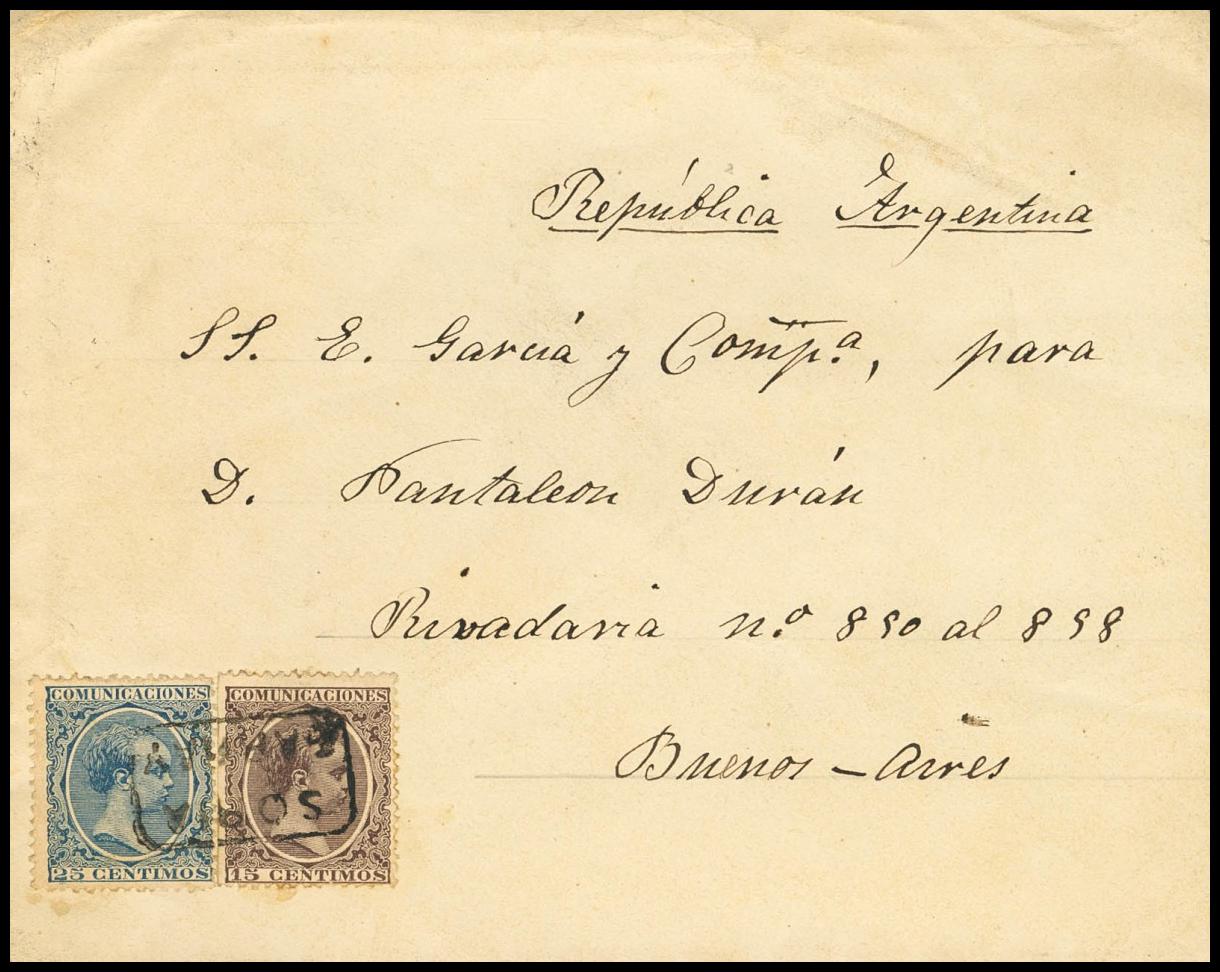 República Argentina
SS. E. García y Compª, para
D. Pantaleon Durán
Rivadavia n.º 890 al 898
Buenos-Aires
COMUNICACIONES COMUNICACIONES
25 CENTIMOS 15 CENTIMOS